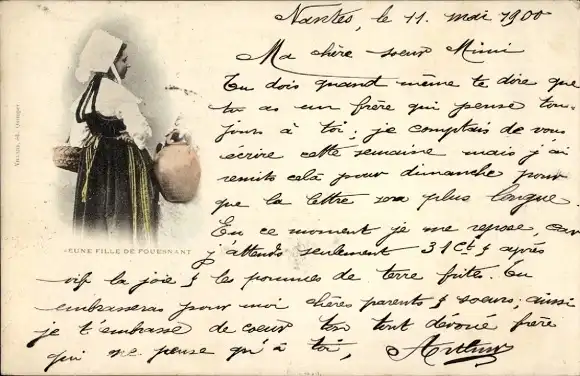 Nantes, le 11. mai 1900
Ma chère soeur Mimi
Tu dois quand même te dire que
tu as un frère qui pense tou-
jours à toi; je comptais de vous
écrire cette semaine mais j'ai
remits cela pour dimanche pour
que la lettre sera plus longue.
En ce moment je me repose, car
j'attends seulement 31 Ct & après
vive la joie & les pommes de terre frites. Tu
embrasseras pour moi chères parents & soeurs, aussi
je t'embrasse de coeur ton tout dévoué frère
qui ne pense qu'à toi, Arthur
JEUNE FILLE DE FOUESNANT
Villard, éd. Quimper